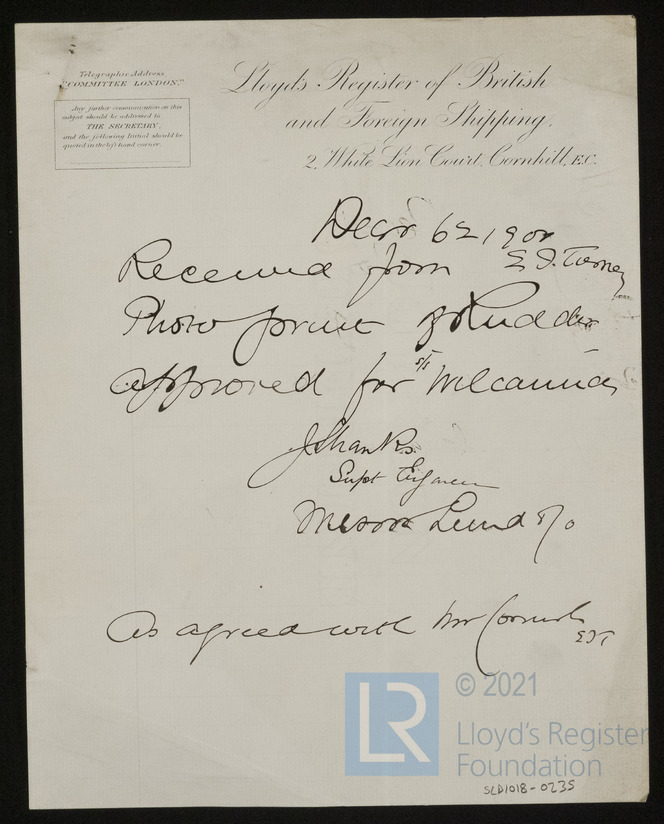 Telegraphic Address,
"COMMITTEE LONDON."
Any further communication on this
subject should be addressed to
THE SECRETARY,
and the following Initial should be
quoted in the left hand corner.
Lloyd's Register of British
and Foreign Shipping,
2, White Lion Court, Cornhill, E.C.
Decr 6th 1901
Received from E. J. Tierney
Photo print of Rudder
approved for s/s Wilcannia
J Shanks
Supt Engineer
Messrs Lund & Co
As agreed with Mr Cornish
EJT
LR
© 2021
Lloyd's Register
Foundation
SLD1018-0235